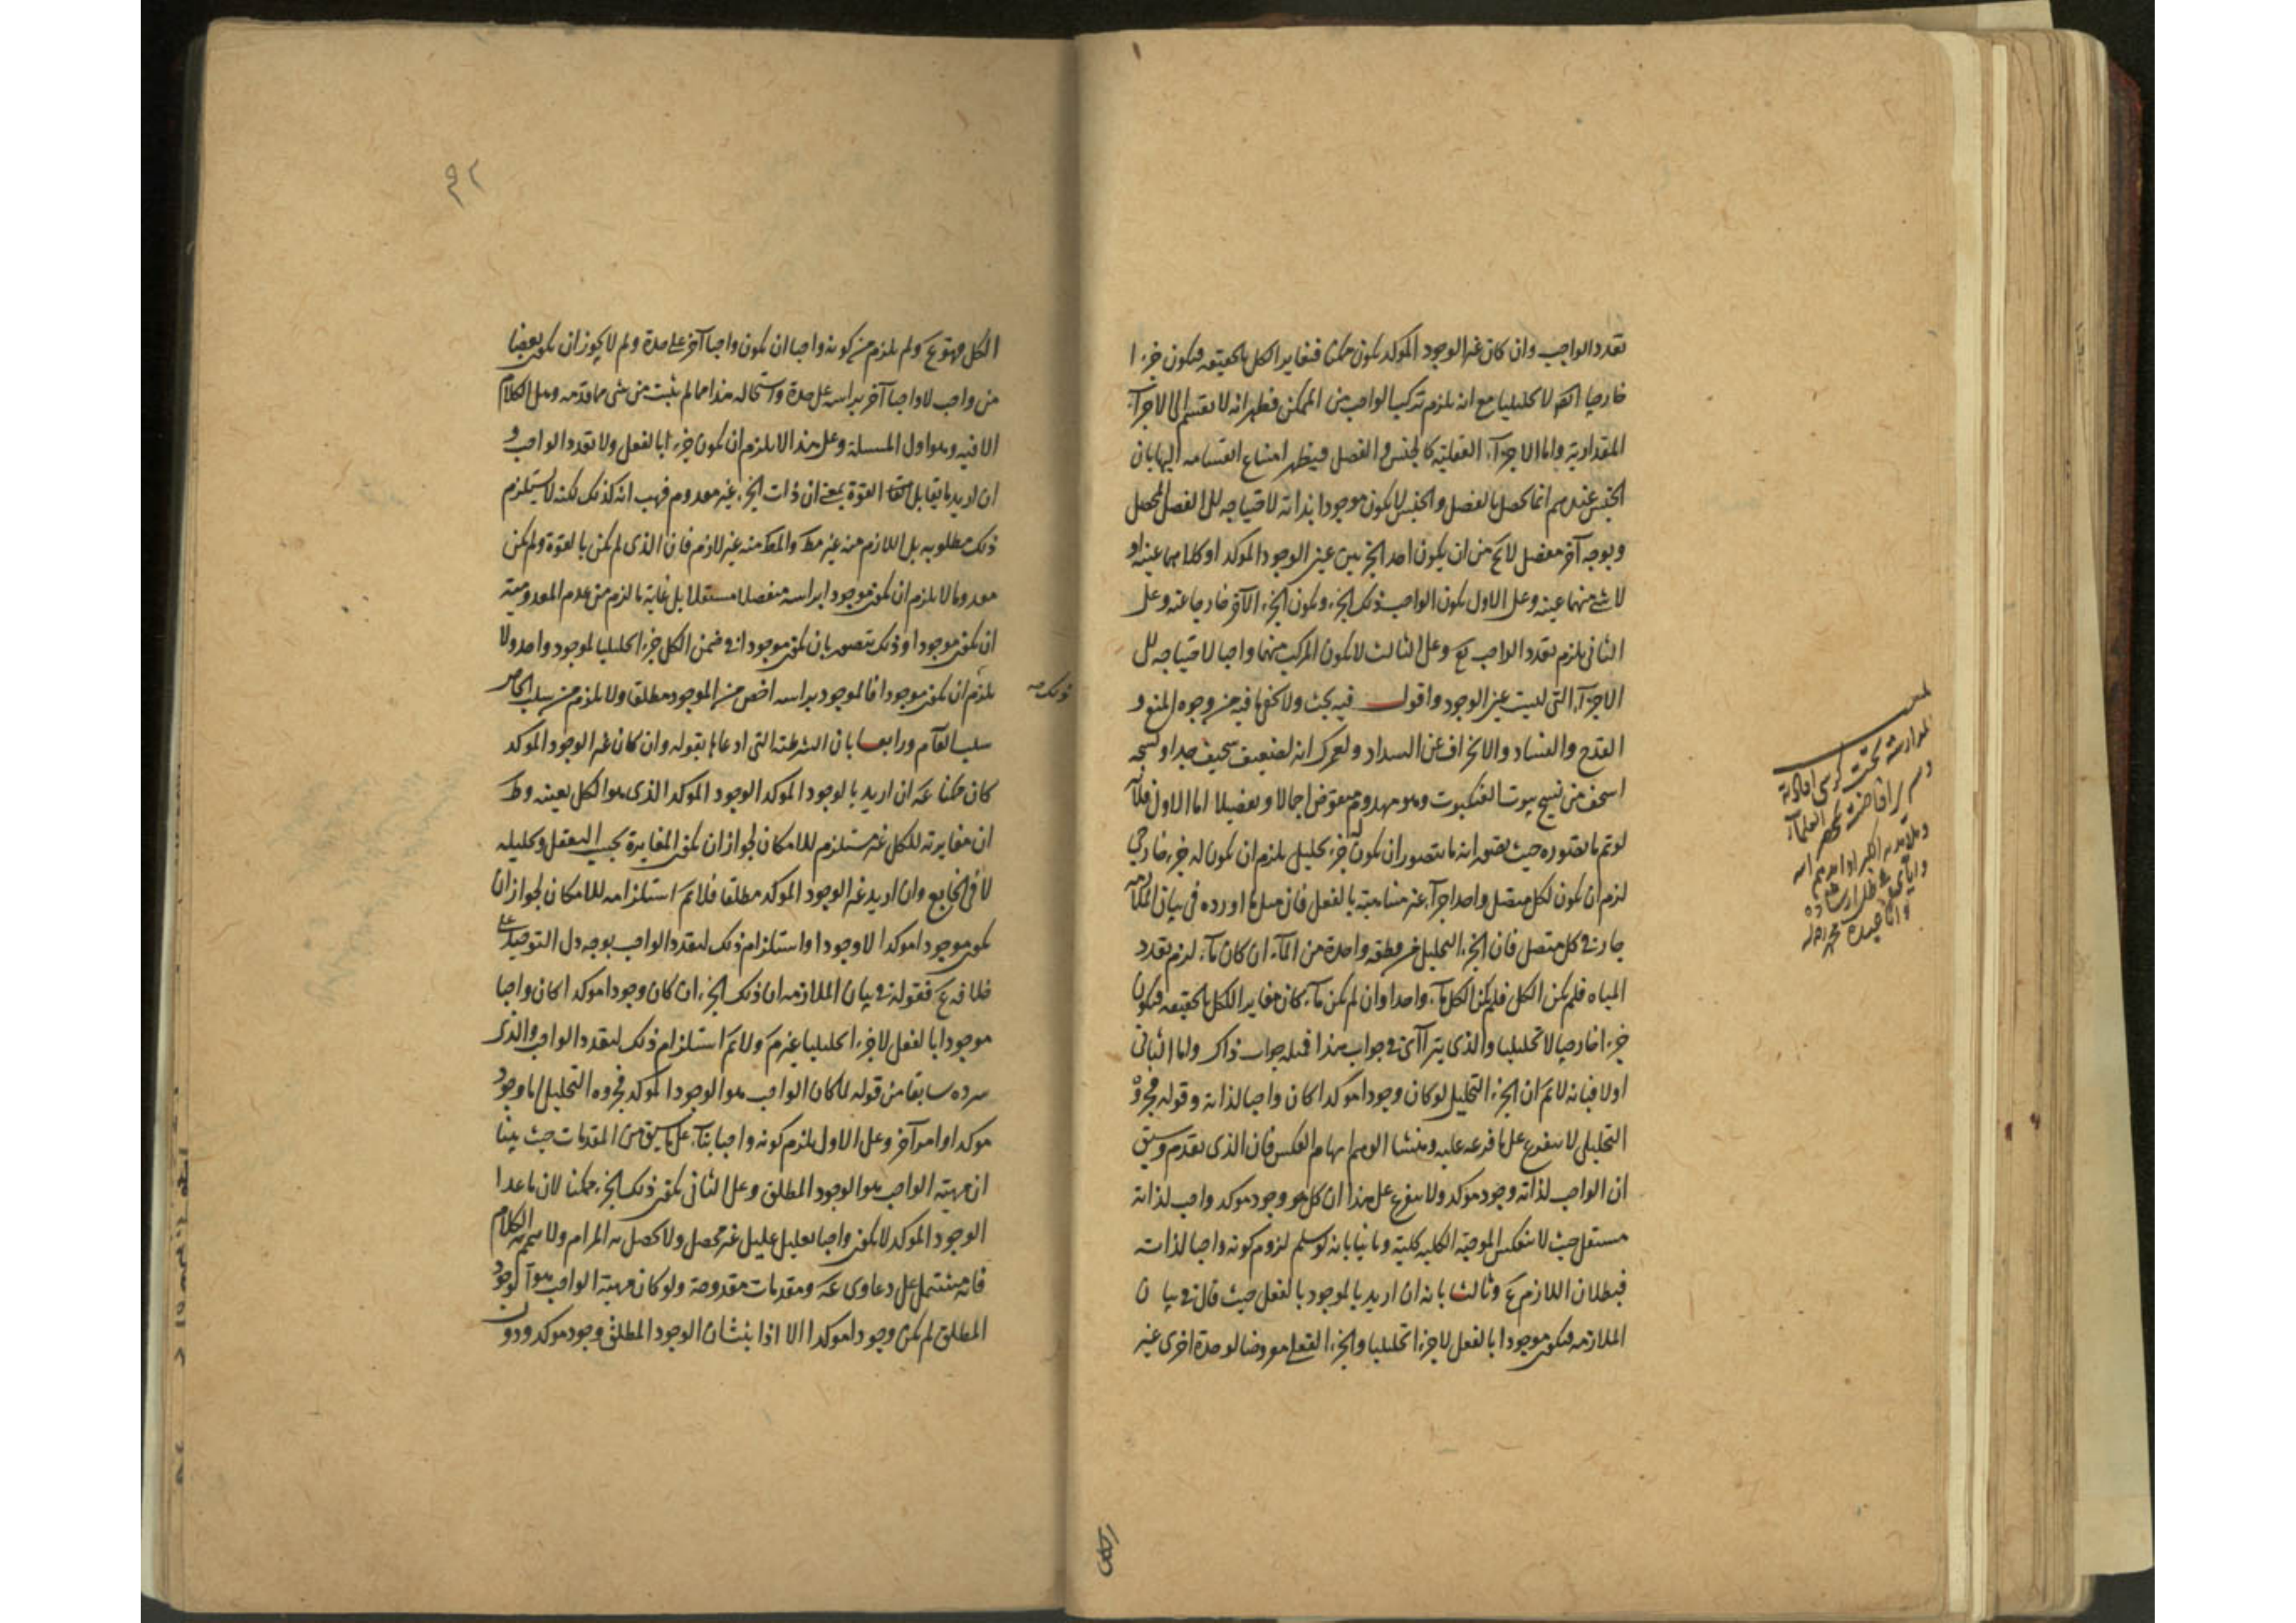 تعدد الواجب وان كان غير الوجود المؤكد يكون ممكنا فيغاير الكل بالحقيقة فيكون جزءا
خارجيا لا تحليليا مع انه يلزم تركب الواجب من الممكن فظهر انه لا ينقسم الى الاجزاء
المقدارية واما الاجزاء العقلية كالجنس والفصل فيظهر امتناع انقسامه اليها بان
الجنس عندهم انما يحصل بالفصل والجنس لا يكون موجودا بذاته لاحتياجه الى الفصل المحصل
وبوجه آخر مفصل لا يخ من ان يكون احد الجزئين عين الوجود المؤكد او كلاهما عينه او
لا شئ منهما عينه وعلى الاول يكون الواجب ذلك الجزء ويكون الجزء الآخر خارجا عنه وعلى
الثانى يلزم تعدد الواجب وعلى الثالث لا يكون المركب منهما واجبا لاحتياجه الى
الاجزاء التى ليست عين الوجود واقول فيه بحث ولا يخفى ما فيه من وجوه المنع و
القدح والفساد والانحراف عن السداد ولعمرك انه لضعيف سخيف جدا ونسجه
اسخف من نسج بيوت العنكبوت وهو مهدوم منقوض اجمالا وتفصيلا اما الاول فلانه
لو تم ما تصوره حيث يتصور ان يكون له جزء تحليلى يلزم ان يكون له جزء خارجى
لزم ان يكون لكل متصل واحد اجزاء غير متناهية بالفعل فان مثل ما اورده فى بيان الملازمة
جار فى كل متصل فان الجزء التحليلى من قطعة واحدة من الماء ان كان ماء لزم تعدد
المياه فلم يكن الكل ماء واحدا وان لم يكن ماء كان مغايرا للكل بالحقيقة فيكون
جزءا خارجيا لا تحليليا والذى يتراآى فى جواب هذا فمثله جواب ذاك واما الثانى
اولا فبانه لا نم ان الجزء التحليلى لو كان وجودا مؤكدا كان واجبا لذاته وقوله فجزؤه
التحليلى لا يتفرع على ما فرعه عليه ومنشأ الوهم ايهام العكس فان الذى تقدم وسبق
ان الواجب لذاته وجود مؤكد ولا يتفرع على هذا ان كل ما هو وجود مؤكد واجب لذاته
مستقل حيث لا تنعكس الموجبة الكلية كلية وثانيا بانه لو سلم لزوم كونه واجبا لذاته
فبطلان اللازم ع وثالثا بانه ان اريد بالموجود بالفعل حيث قال فى بيان
الملازمة فيكون موجودا بالفعل لا جزءا تحليليا والجزء الفعلى معروضا لوحدة اخرى غير
الكل فهو ع ولم يلزم من كونه واجبا ان يكون واجبا آخر على حدة ولم لا يجوز ان يكون بعضا
من واجب لا واجبا آخر براسه على حدة واستحالة هذا مما لم يثبت من شئ مما قدمه وهل الكلام
الا فيه وهو اول المسئلة وعلى هذا لا يلزم ان يكون جزءا بالفعل ولا تعدد الواجب و
ان اريد ما يقابل القوة بمعنى ان ذات الجزء غير معدوم فهب انه كذلك لكنه لا يستلزم
ذلك مطلوبه بل اللازم منه غير مط والمط منه غير لازم فان الذى لم يكن بالقوة ولم يكن
معدوما لا يلزم ان يكون موجودا براسه منفصلا مستقلا بل غاية ما لزم من عدم المعدومية
ان يكون موجودا وذلك يتصور بان يكون موجودا فى ضمن الكل جزءا تحليليا لموجود واحد ولا
يلزم ان يكون موجودا فالموجود براسه اخص من الموجود مطلقا ولا يلزم من سلب الخاص
ذلك صه
سلب العام ورابعا بان الشرطية التى ادعاها بقوله وان كان غير الوجود المؤكد
كان ممكنا ان اريد بالوجود المؤكد الوجود المؤكد الذى هو الكل بعينه
ان مغايرته للكل غير مستلزم للامكان لجواز ان يكون المغايرة بحسب التعقل وتحليله
لا فى الخارج وان اريد غير الوجود المؤكد مطلقا فلا نم استلزامه للامكان لجواز ان
يكون موجودا مؤكدا لا وجودا واستلزام ذلك لتعدد الواجب بوجه دل التوحيد على
خلافه ع فقوله فى بيان الملازمة ان ذلك الجزء ان كان وجودا مؤكدا كان واجبا
موجودا بالفعل لا جزءا تحليليا غير م ولا نم استلزام ذلك لتعدد الواجب والذى
سرده سابقا من قوله لما كان الواجب هو الوجود المؤكد فجزؤه التحليلى اما وجود
مؤكد او امر آخر وعلى الاول يلزم كونه واجبا بناء على ما سبق من المقدمات حيث بينا
ان مهية الواجب هو الوجود المطلق وعلى الثانى يكون ذلك الجزء ممكنا لان ما عدا
الوجود المؤكد لا يكون واجبا تعليل عليل غير محصل ولا يحصل به المرام ولا يتم به الكلام
فانه مشتمل على دعاوى ومقدمات مقدوحة ولو كان مهية الواجب هو الوجود
المطلق لم يكن وجودا مؤكدا الا اذا ثبت ان الوجود المطلق وجود مؤكد ودون